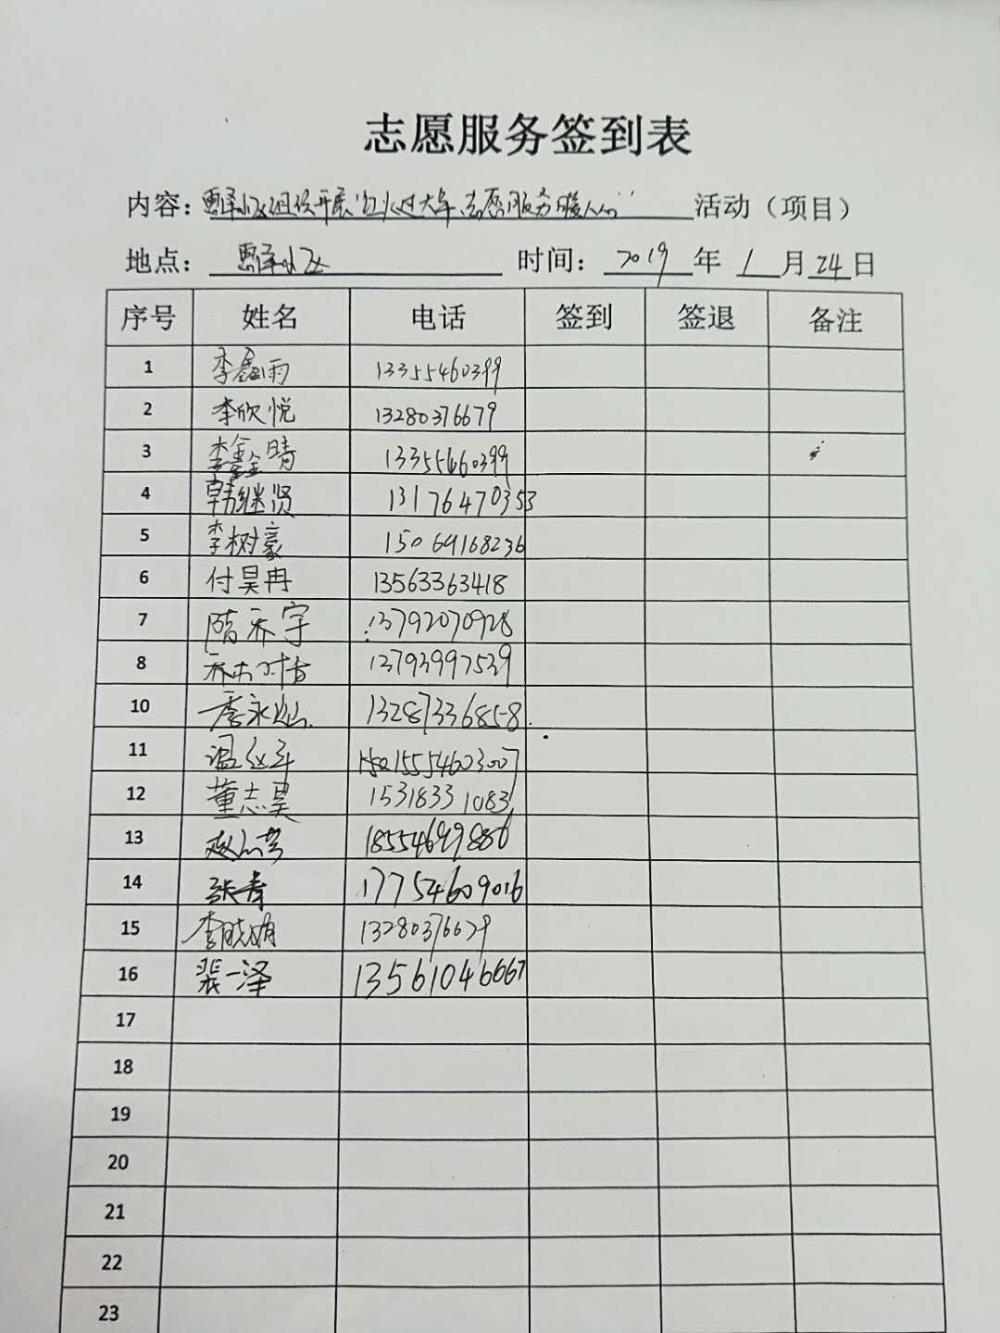 志愿服务签到表
内容：惠泽小区组织开展"红火过大年、志愿服务暖人心" 活动（项目）
地点：惠泽小区 时间：2019年1月24日
序号 姓名 电话 签到 签退 备注
1 李鑫雨 13355460399
2 李欣悦 13280376679
3 李鑫晴 13355460399
4 韩继贤 13176470353
5 李树豪 15069168236
6 付昊冉 13563363418
7 隋乔宇 13792070928
8 13793997539
10 季永 13287336858
11 温 15554603007
12 董志昊 15318331083
13 赵 18554699886
14 张青 17754609016
15 李晓娟 13280376679
16 裴一泽 13561046667
17
18
19
20
21
22
23